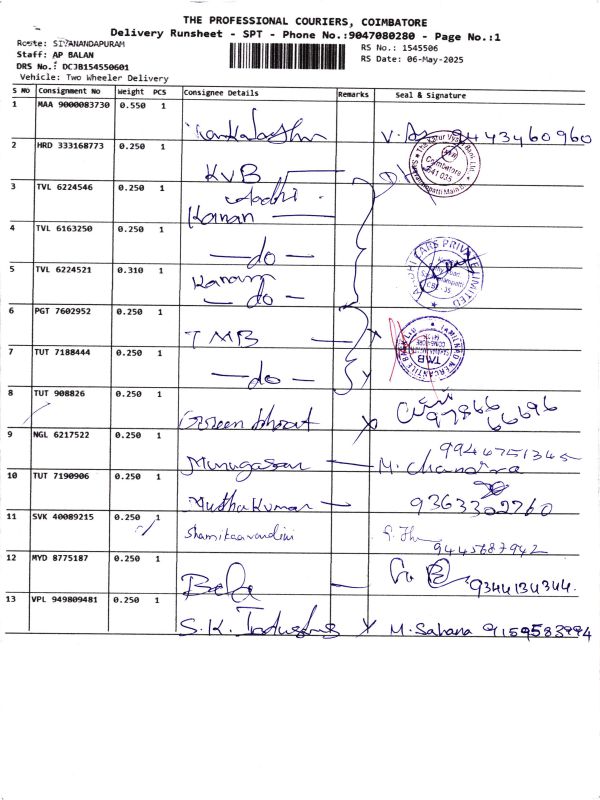 THE PROFESSIONAL COURIERS, COIMBATORE
Delivery Runsheet - SPT - Phone No.:9047080280 - Page No.:1
Route: SIVANANDAPURAM
Staff: AP BALAN
DRS No.: DCJB154550601
Vehicle: Two Wheeler Delivery
RS No.: 1545506
RS Date: 06-May-2025
S NO Consignment No Weight PCS Consignee Details Remarks Seal & Signature
1 MAA 9000083730 0.550 1 9443460960
2 HRD 333168773 0.250 1 KVB
Coimbatore
641 035
3 TVL 6224546 0.250 1 Kanan
4 TVL 6163250 0.250 1 — do —
5 TVL 6224521 0.310 1 — do —
CARS PRIVATE LIMITED
6 PGT 7602952 0.250 1 TMB
TAMILNAD MERCANTILE BANK
TMB
7 TUT 7188444 0.250 1 — do —
8 TUT 908826 0.250 1 97866 66696
9 NGL 6217522 0.250 1 Murugasan M. Chandra
9944751345
10 TUT 7190906 0.250 1 MuthuKumar 9363302760
11 SVK 40089215 0.250 1
9445687942
12 MYD 8775187 0.250 1 9344134344
13 VPL 949809481 0.250 1 S.K. Industries M. Sahana 9159583994